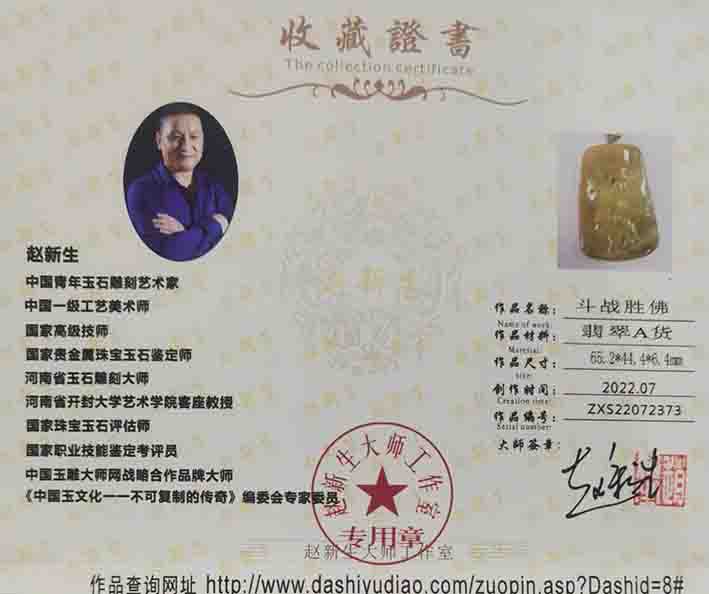 收藏證書
The collection certificate
赵新生
中国青年玉石雕刻艺术家
中国一级工艺美术师
国家高级技师
国家贵金属珠宝玉石鉴定师
河南省玉石雕刻大师
河南省开封大学艺术学院客座教授
国家珠宝玉石评估师
国家职业技能鉴定考评员
中国玉雕大师网战略合作品牌大师
《中国玉文化一一不可复制的传奇》编委会专家委员
作品名称: 斗战胜佛
Name of work:
作品材料: 翡翠A货
Material:
作品尺寸: 65.2*44.4*6.4mm
size:
创作时间: 2022.07
Creation time:
作品编号: ZXS22072373
Serial number:
大师签章:
赵新生大师工作室
专用章
赵新生大师工作室
作品查询网址 http://www.dashiyudiao.com/zuopin.asp?Dashid=8#